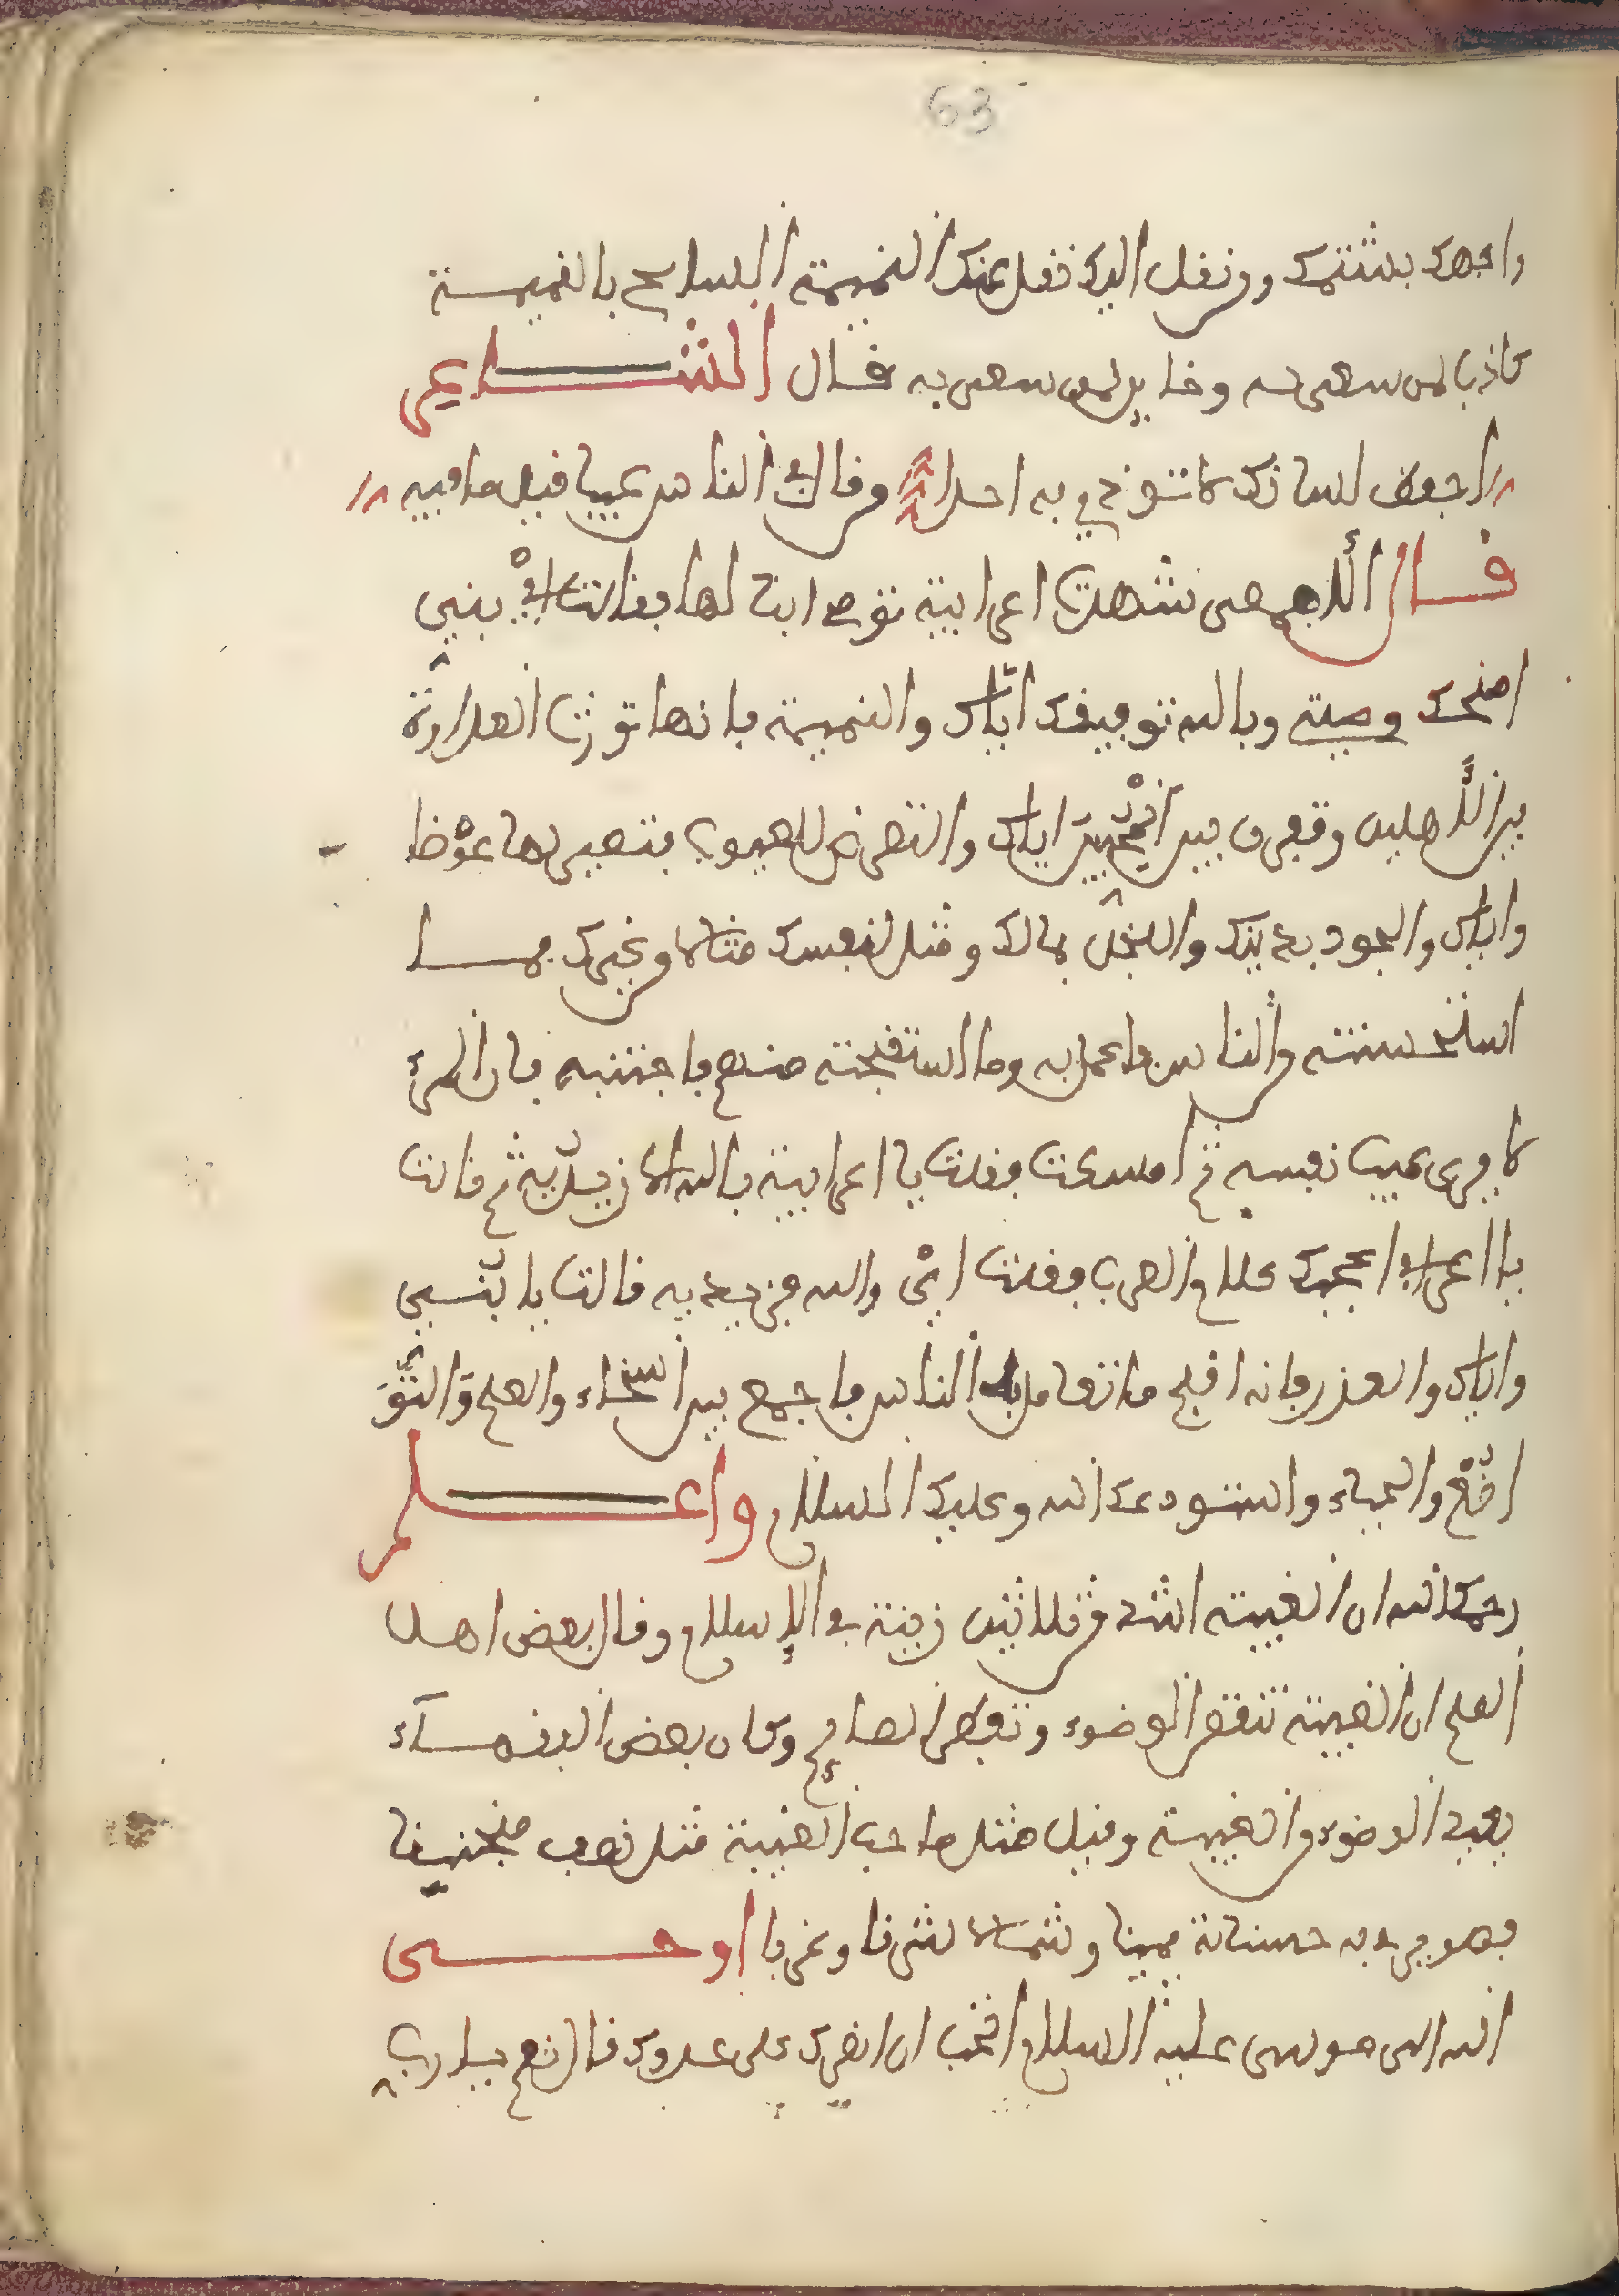 63
واجهك بشتمك ومن نقل اليك نقل عنك النميمة الساعي بالنميمة
كاذب لمن سعى له وخاين لمن سعى به قال الشاعي
احفظ لسانك لا تؤذي به احدا من قال في الناس عيبا قيل ما فيه
قال الاصمعي شهدت اعرابية توصي ابنا لها فقالت اي بني
امنحك وصيتي وبالله توفيقك اياك والنميمة فانها تورث العداوة
بين الاهلين وتفرق بين المحبين اياك والتعرض للعيوب فتصير لها غرضا
واياك والجود بدينك والبخل بمالك ومثل لنفسك مثالا من غيرك فما
استحسنته من الناس فاعمل به وما استقبحته منهم فاجتنبه فان المرء
لا يرى عيب نفسه ثم امسكت فقلت يا اعرابية بالله الا زيديه ثم قالت
يا اعرابي اعجبك كلام العرب فقلت اي والله فزيديه قالت يا بني
واياك والعذر فانه اقبح ما تعامل به الناس فاجمع بين السخاء والعلم والتو
اضع والحياء واستودعك الله وعليك السلام واعلم
رحمك الله ان الغيبة اشد من ثلاثين زنية في الإسلام وقال بعض اهل
العلم ان الغيبة تنقض الوضوء وتفطر الصايم وكان بعض الفقهاء
يعيد الوضوء من الغيبة وقيل مثل صاحب الغيبة مثل نصب منجنيقا
فهو يرمي به حسناته يمينا وشمالا شرقا وغربا اوحى
الله الى موسى عليه السلام اتحب ان انصرك على عدوك قال نعم يا رب